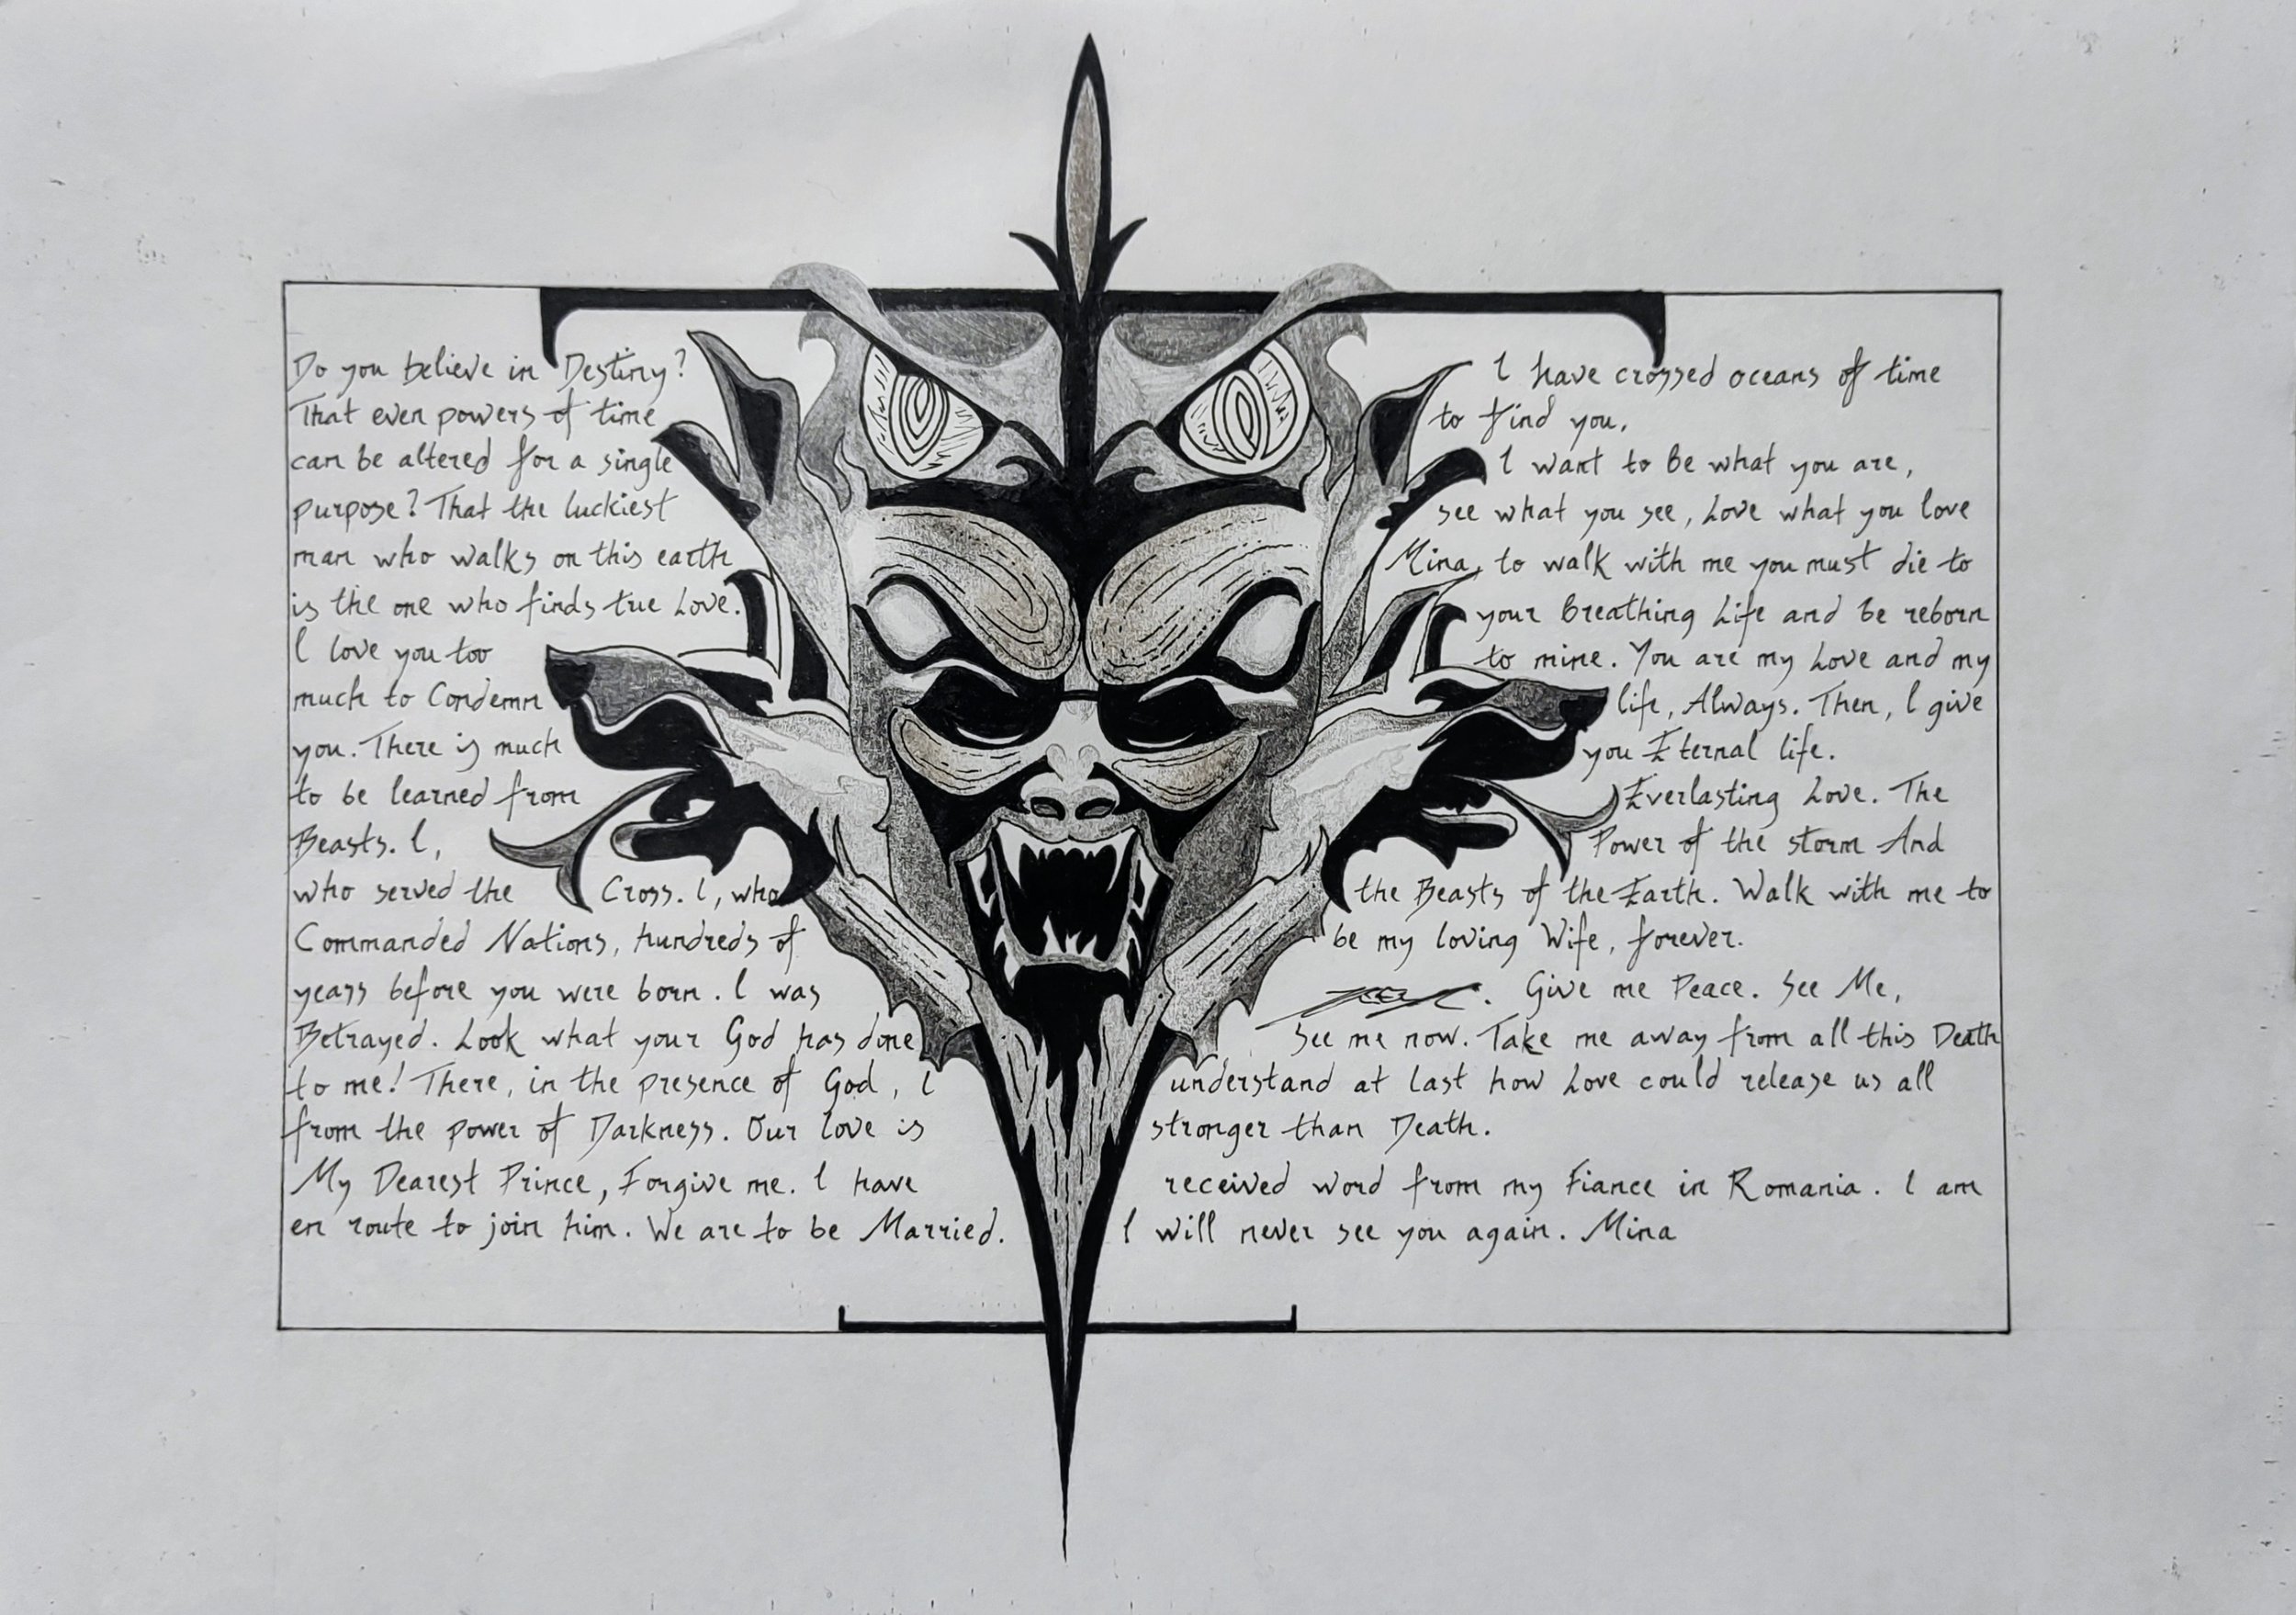 Do you believe in Destiny?
That even powers of time
can be altered for a single
purpose? That the luckiest
man who walks on this earth
is the one who finds true Love.
I love you too
much to Condemn
you. There is much
to be learned from
Beasts. I,
who served the Cross. I, who
Commanded Nations, hundreds of
years before you were born. I was
Betrayed. Look what your God has done
to me! There, in the presence of God, I
from the power of Darkness. Our love is
My Dearest Prince, Forgive me. I have
en route to join him. We are to be Married.
I have crossed oceans of time
to find you,
I want to be what you are,
see what you see, Love what you love
Mina, to walk with me you must die to
your Breathing Life and be reborn
to mine. You are my Love and my
life, Always. Then, I give
you Eternal life.
Everlasting Love. The
Power of the storm And
the Beasts of the Earth. Walk with me to
be my loving Wife, forever.
. Give me Peace. See Me,
See me now. Take me away from all this Death
understand at last how Love could release us all
stronger than Death.
received word from my Fiance in Romania. I am
I will never see you again. Mina